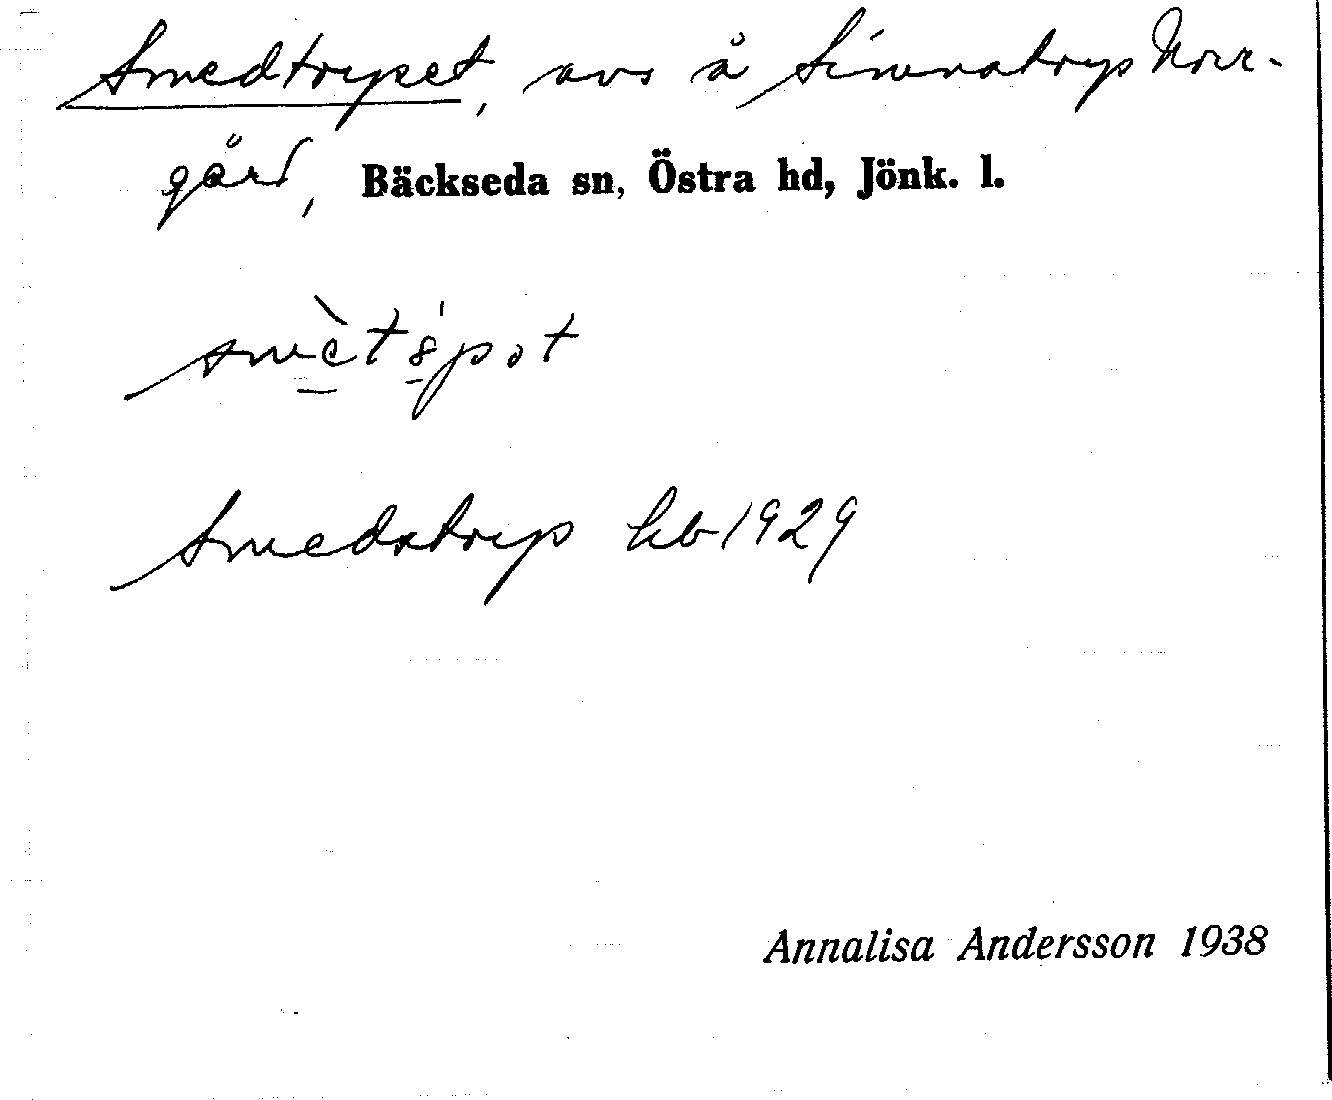 Smedtrypet, avs å Simnatryp Norr-
gård, Bäckseda sn, Östra hd, Jönk. l.
Smedstryp hb 1929
Annalisa Andersson 1938